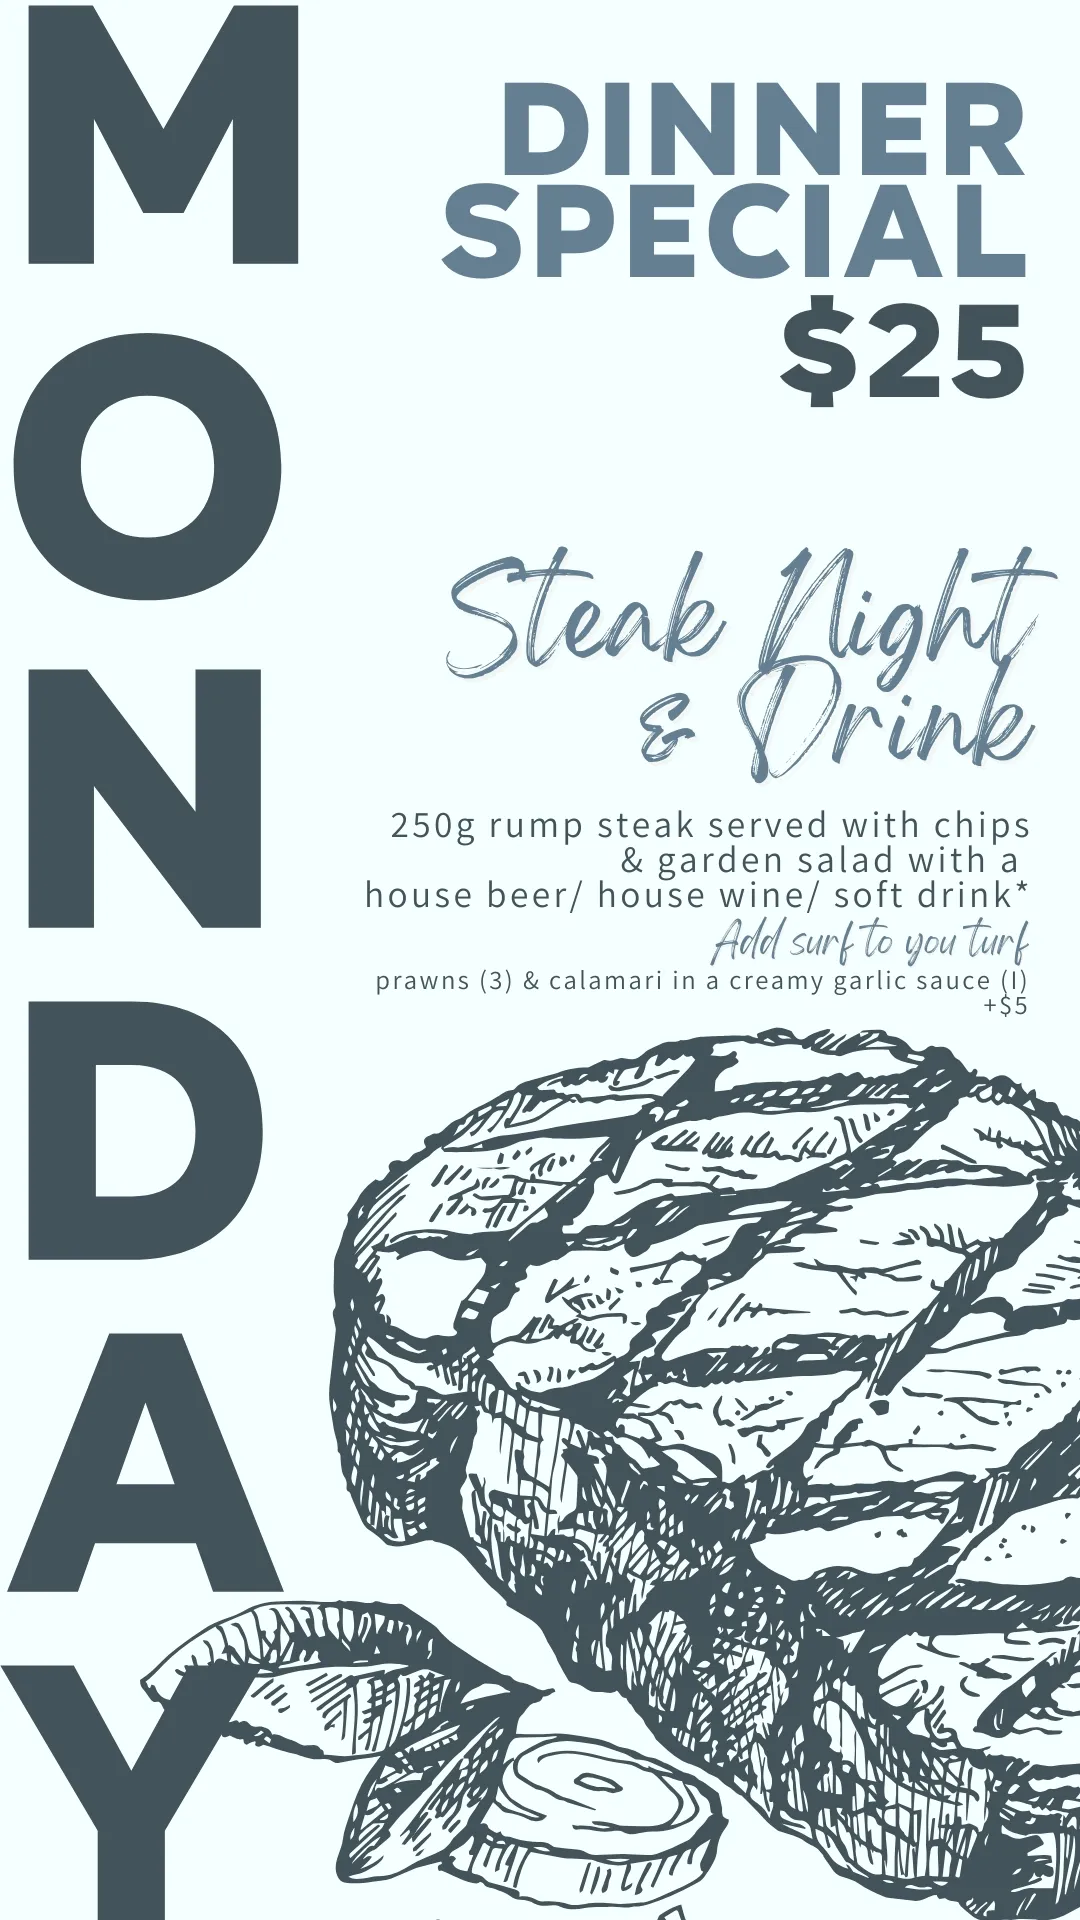 MONDAY
DINNER
SPECIAL
$25
Steak Night
& Drink
250g rump steak served with chips
& garden salad with a
house beer/ house wine/ soft drink*
Add surf to you turf
prawns (3) & calamari in a creamy garlic sauce (I)
+$5